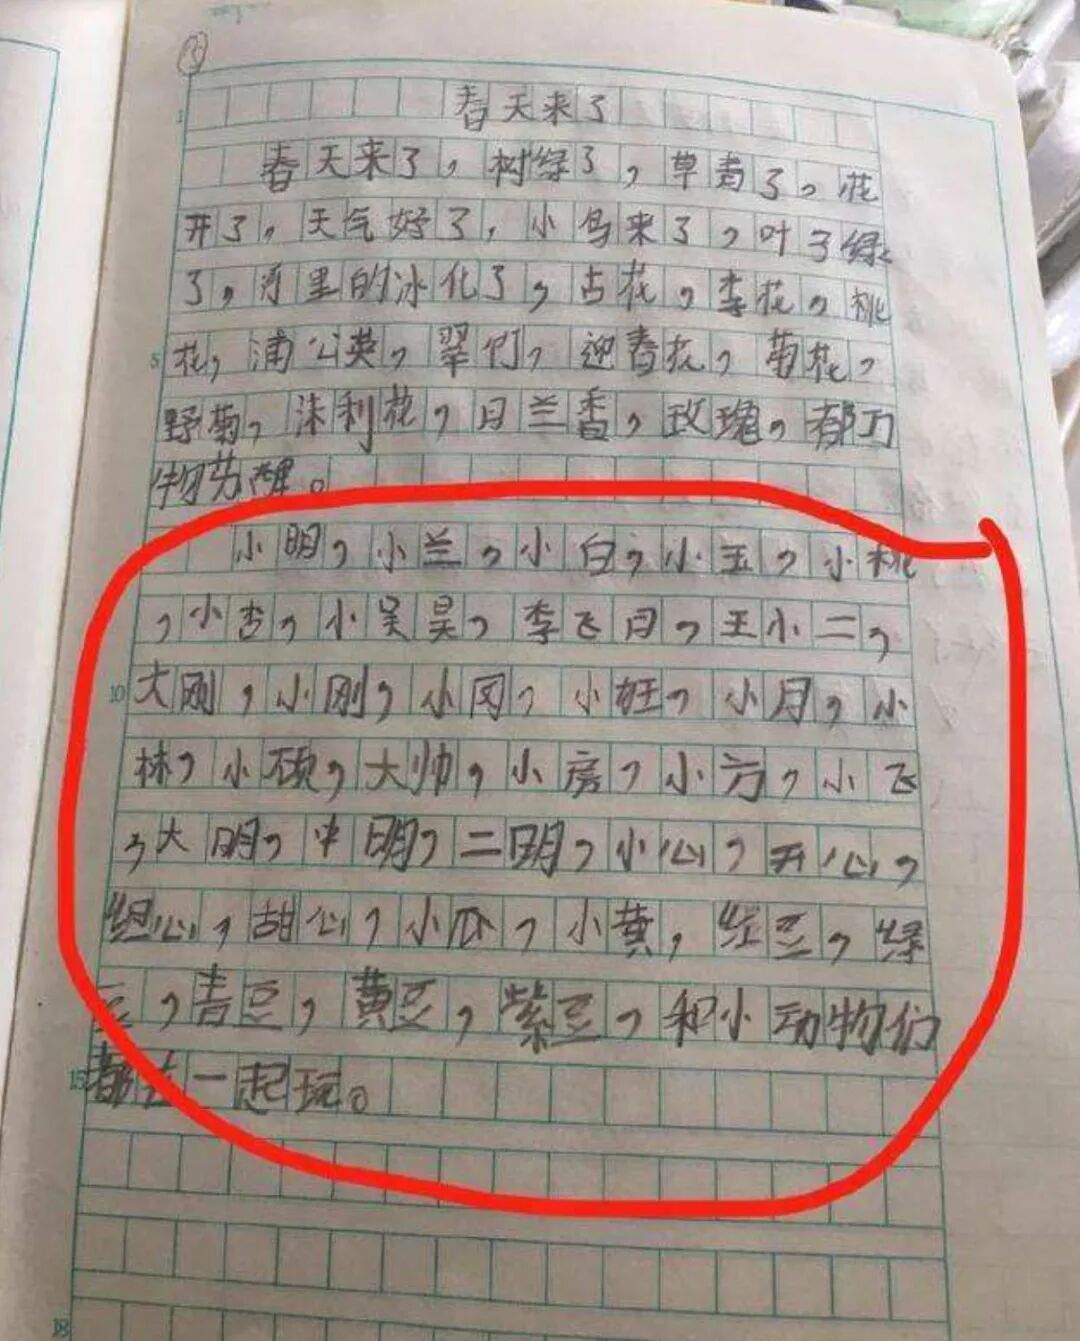 春天来了
春天来了，树绿了，草青了。花
开了，天气好了，小鸟来了，叶子绿
了，河里的冰化了，占花，李花，桃
花，浦公英，翠竹，迎春花，菊花，
野菊，沫利花，月兰香，玫瑰，都万
物苏醒。
小明，小兰，小白，小玉，小桃
，小杏，小吴昊，李飞月，王小二，
大刚，小刚，小冈，小旺，小月，小
林，小硕，大帅，小房，小方，小飞
，大明，中明，二明，小心，开心，
担心，甜心，小瓜，小黄，红豆，绿
豆，青豆，黄豆，紫豆，和小动物们
都去一起玩。
1
5
10
15
18